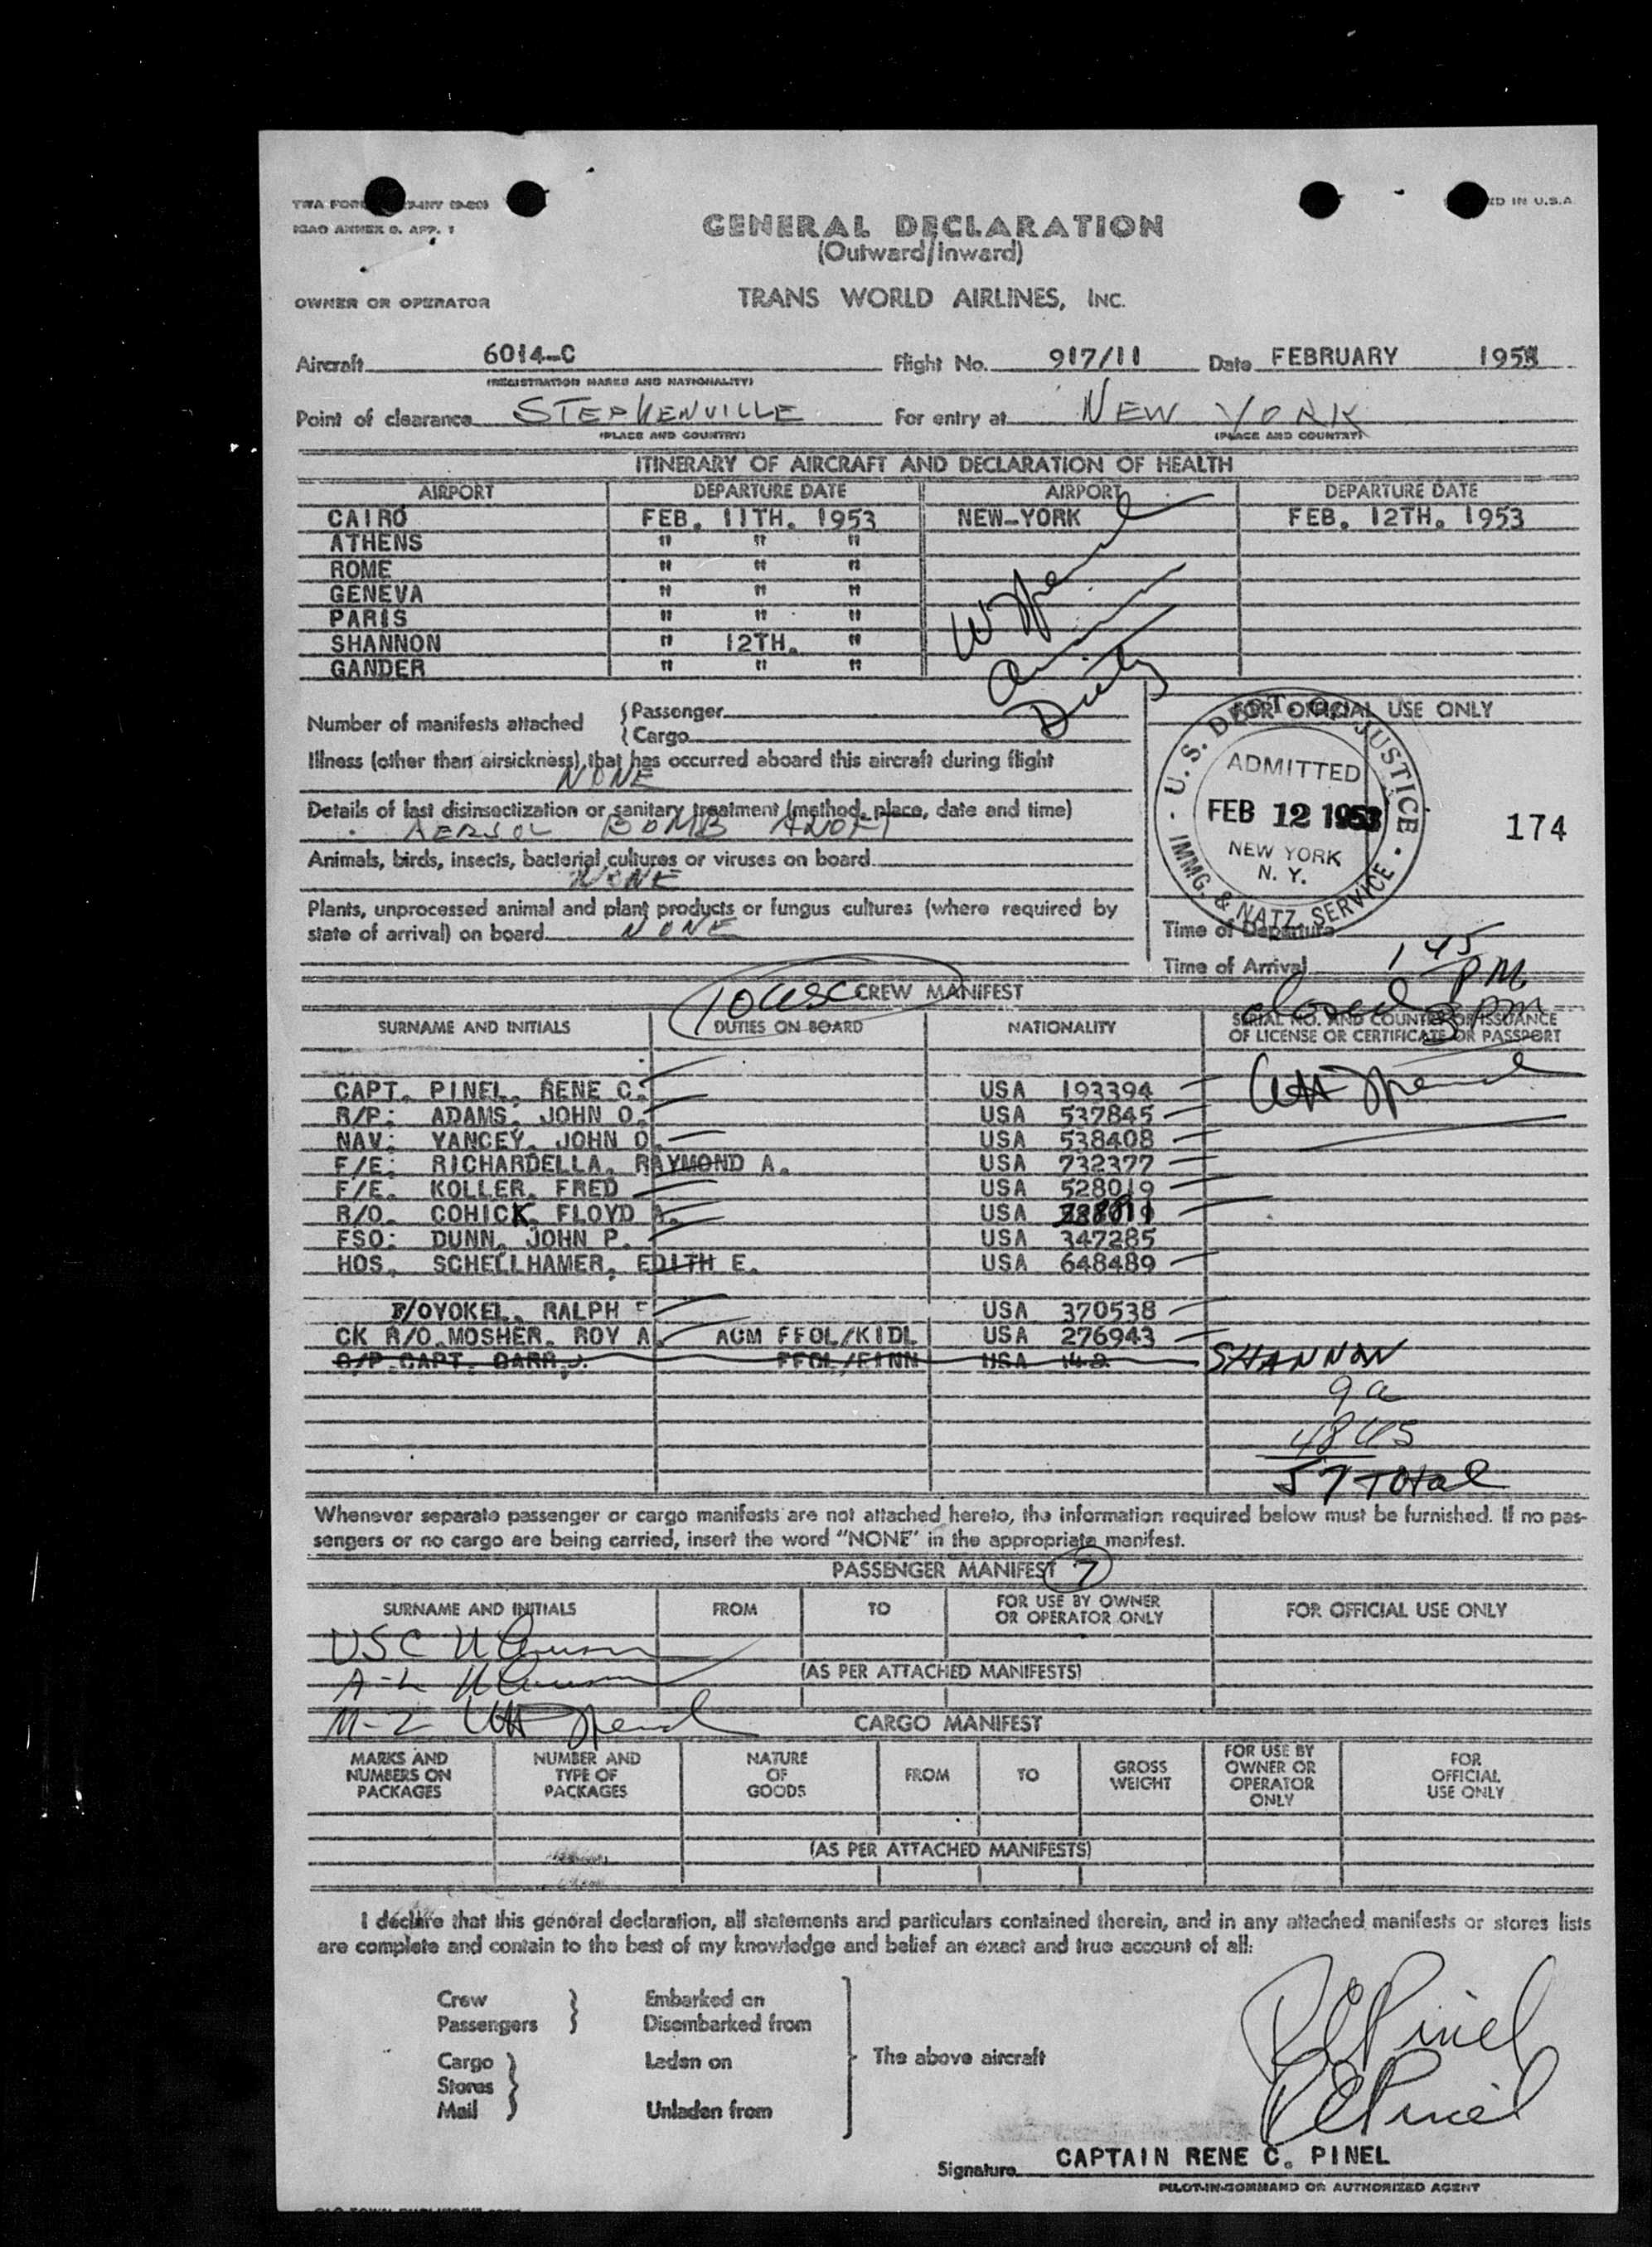 ICAO ANNEX 9. APP. 1
GENERAL DECLARATION
(Outward/Inward)
OWNER OR OPERATOR TRANS WORLD AIRLINES, INC.
Aircraft 6014-C Flight No. 917/11 Date FEBRUARY 1953
(REGISTRATION MARKS AND NATIONALITY)
Point of clearance STEPHENVILLE For entry at NEW YORK
(PLACE AND COUNTRY) (PLACE AND COUNTRY)
ITINERARY OF AIRCRAFT AND DECLARATION OF HEALTH
AIRPORT DEPARTURE DATE AIRPORT DEPARTURE DATE
CAIRO FEB. 11TH. 1953 NEW-YORK FEB. 12TH. 1953
ATHENS " " "
ROME " " "
GENEVA " " "
PARIS " " "
SHANNON " 12TH. "
GANDER " " "
Duty
Number of manifests attached { Passenger
{ Cargo
FOR OFFICIAL USE ONLY
Illness (other than airsickness) that has occurred aboard this aircraft during flight
NONE
Details of last disinsectization or sanitary treatment (method, place, date and time)
BOMB
Animals, birds, insects, bacterial cultures or viruses on board
NONE
Plants, unprocessed animal and plant products or fungus cultures (where required by
state of arrival) on board NONE
U.S. DEPT. OF JUSTICE
ADMITTED
FEB 12 1953
NEW YORK
N. Y.
IMMG. & NATZ. SERVICE
174
Time of Departure
Time of Arrival 1 45 PM
closed 3 PM
10 USC CREW MANIFEST
SURNAME AND INITIALS DUTIES ON BOARD NATIONALITY SERIAL NO. AND COUNTRY OF ISSUANCE
OF LICENSE OR CERTIFICATE OR PASSPORT
CAPT. PINEL, RENE C. USA 193394
R/P: ADAMS, JOHN O. USA 537845
NAV: YANCEY, JOHN D. USA 538408
F/E: RICHARDELLA, RAYMOND A. USA 732377
F/E. KOLLER, FRED USA 528019
R/O. COHICK, FLOYD A. USA
FSO: DUNN, JOHN P. USA 347285
HOS. SCHELLHAMER, EDITH E. USA 648489
F/O YOKEL, RALPH F USA 370538
CK R/O. MOSHER, ROY A. ACM FFOL/KIDL USA 276943
CAPT. DARR, J. FFOL/EINN USA SHANNON
9 a
48 US
57 Total
Whenever separate passenger or cargo manifests are not attached hereto, the information required below must be furnished. If no pas-
sengers or no cargo are being carried, insert the word "NONE" in the appropriate manifest.
PASSENGER MANIFEST 7
SURNAME AND INITIALS FROM TO FOR USE BY OWNER
OR OPERATOR ONLY FOR OFFICIAL USE ONLY
USC
A-L
(AS PER ATTACHED MANIFESTS)
M-Z
CARGO MANIFEST
MARKS AND
NUMBERS ON
PACKAGES NUMBER AND
TYPE OF
PACKAGES NATURE
OF
GOODS FROM TO GROSS
WEIGHT FOR USE BY
OWNER OR
OPERATOR
ONLY FOR
OFFICIAL
USE ONLY
(AS PER ATTACHED MANIFESTS)
I declare that this general declaration, all statements and particulars contained therein, and in any attached manifests or stores lists
are complete and contain to the best of my knowledge and belief an exact and true account of all:
Crew Embarked on
Passengers Disembarked from
Cargo Laden on The above aircraft
Stores
Mail Unladen from
R C Pinel
R C Pinel
Signature CAPTAIN RENE C. PINEL
PILOT-IN-COMMAND OR AUTHORIZED AGENT